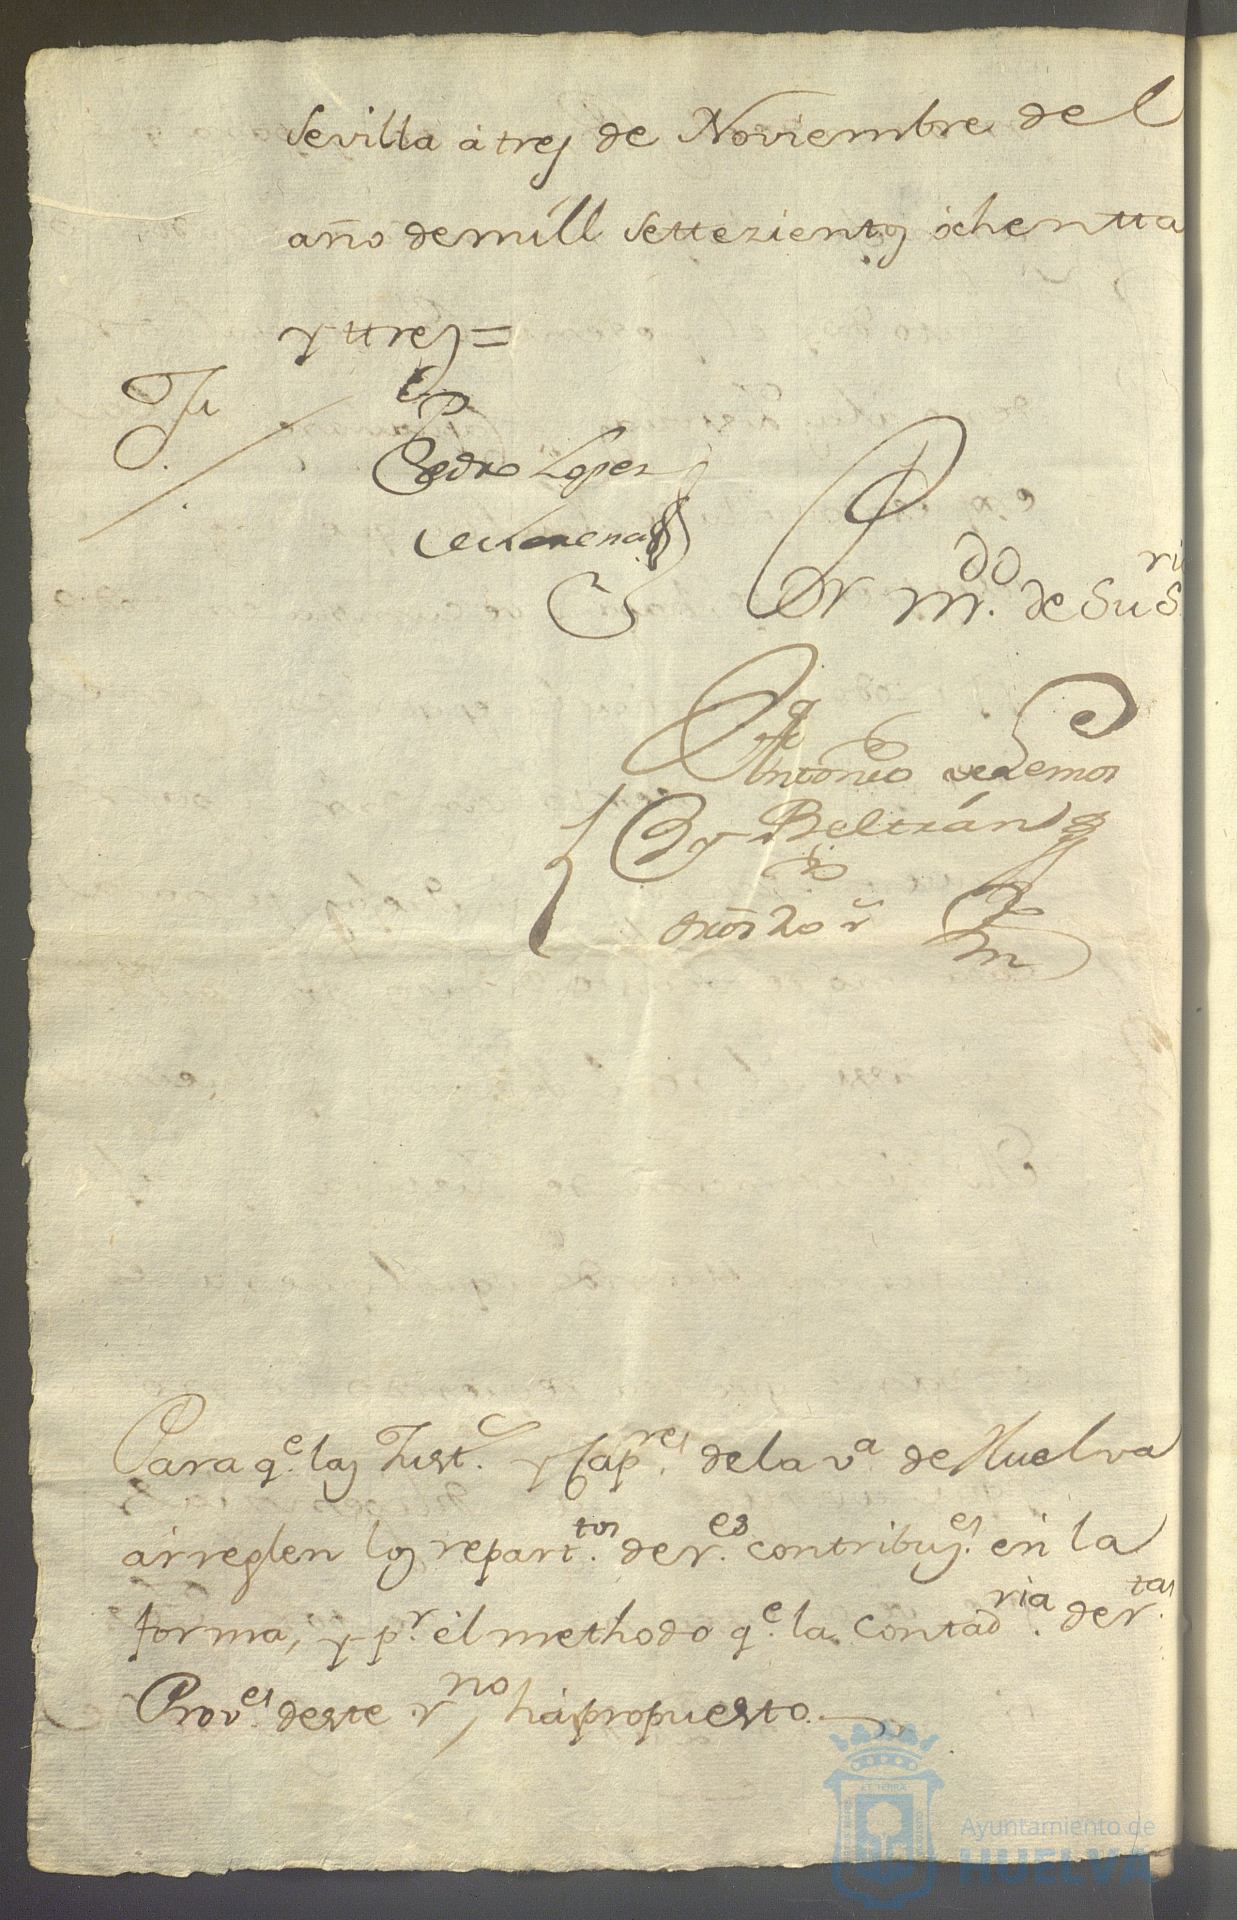 Sevilla á tres de Noviembre del
año de mill settezientos óchentta
y ttres=
Pedro Lopez
Por m.do de Su Sria
Antonio de Lemos
y Beltrán
Para q.e las Just.c y Cap.res de la v.a de Huelva
arreglen los repart.tos de r.es contribuz.es en la
forma, y p.r él methodo q.e la Contad.ria de r.tas
Prov.es deste r.no há propuesto.
Ayuntamiento de
HUELVA